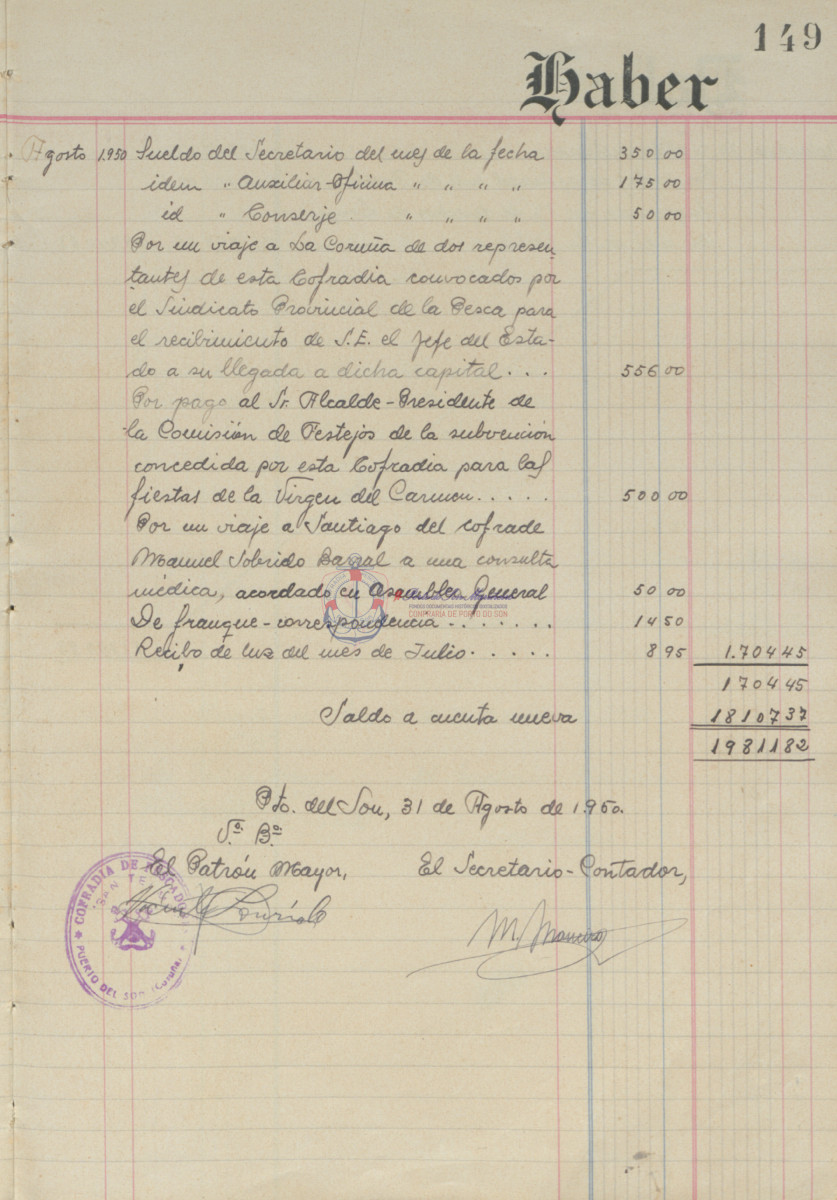 149
Haber
Agosto 1.950 Sueldo del Secretario del mes de la fecha 350 00
idem " Auxiliar-Oficina " " " " 175 00
id " Conserje " " " " 50 00
Por un viaje a La Coruña de dos represen
tantes de esta Cofradia convocados por
el Sindicato Provincial de la Pesca para
el recibimiento de S.E. el Jefe del Esta-
do a su llegada a dicha capital . . . 556 00
Por pago al Sr. Alcalde-Presidente de
la Comisión de Festejos de la subvención
concedida por esta Cofradia para las
fiestas de la Virgen del Carmen . . . . . 500 00
Por un viaje a Santiago del cofrade
Manuel Sobrido Barral a una consulta
médica, acordado en Asamblea General 50 00
De franque-correspondencia . . . . . . . 14 50
Recibo de luz del mes de Julio . . . . . 8 95 1.704 45
1704 45
Saldo a cuenta nueva 18107 37
19811 82
Pto. del Son, 31 de Agosto de 1.950.
V.º B.º
El Patrón Mayor, El Secretario-Contador,
COFRADIA DE PESCADORES
PUERTO DEL SON (Coruña)
CONFRARÍA DE PORTO DO SON